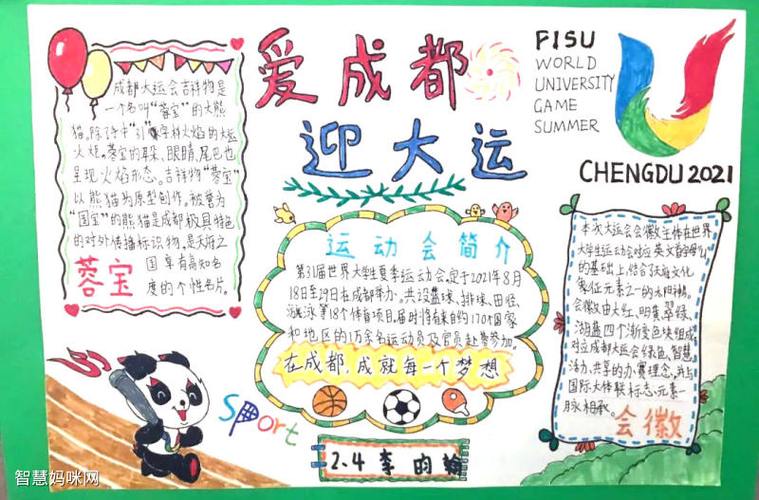 爱成都
迎大运
FISU
WORLD
UNIVERSITY
GAME
SUMMER
CHENGDU 2021
成都大运会吉祥物是
一个名叫“蓉宝”的大熊
猫。除了手中“31”字样火焰的大运
火炬,蓉宝的耳朵、眼睛、尾巴也
呈现火焰形态。吉祥物“蓉宝”
以熊猫为原型创作,被誉为
“国宝”的熊猫是成都极具特色
的对外传播标识物,是天府之
国享有高知名
度的个性名片。
蓉宝
运动会简介
第31届世界大学生夏季运动会,定于2021年8月
18日至29日在成都举办。共设篮球、排球、田径、
游泳等18个体育项目。届时将有来自约170个国家
和地区的1万余名运动员及官员赴蓉参加。
在成都,成就每一个梦想
本次大运会会徽主体在世界
大学生运动会对应英文首字母U
的基础上,结合天府文化
象征元素之一的太阳神鸟。
会徽由大红、明黄、翠绿、
湖蓝四个渐变色块组成
对应成都大运会绿色、智慧
活力、共享的办赛理念。并与
国际大体联标志元素一
脉相承。
会徽
Sport
2.4 李昀翰
智慧妈咪网